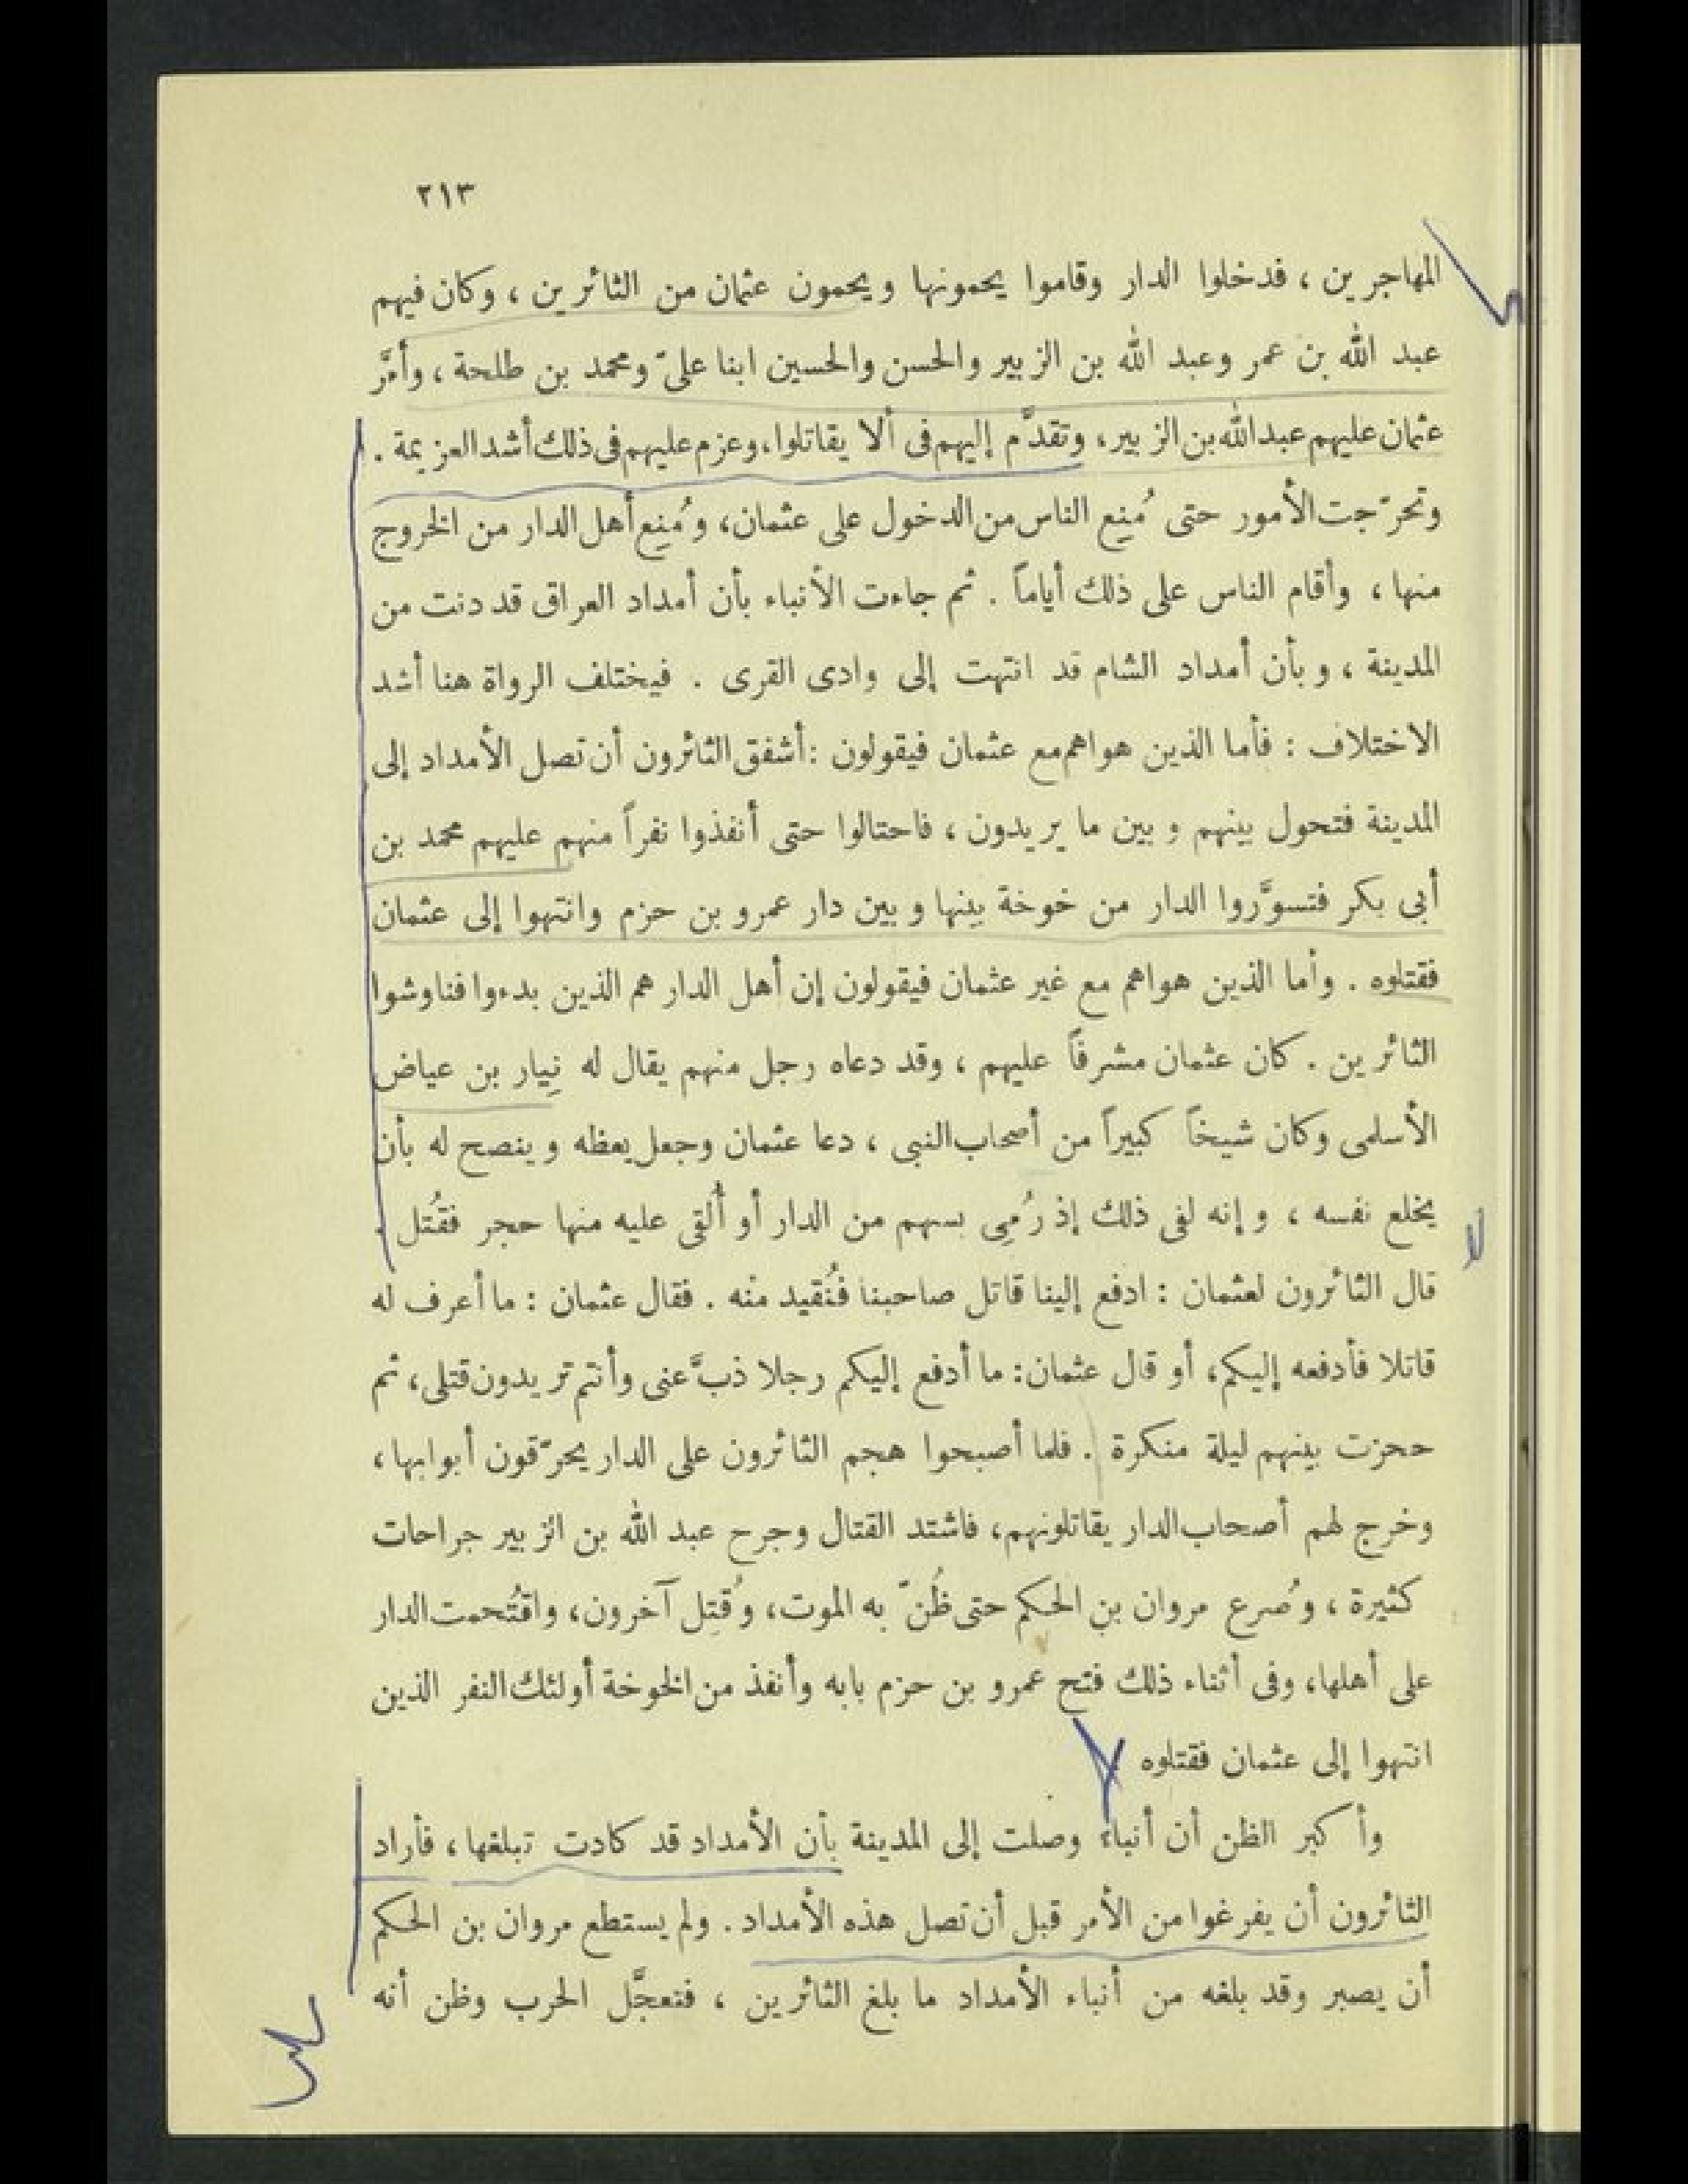 ٢١٣
المهاجرين ، فدخلوا الدار وقاموا يحمونها ويحمون عثمان من الثائرين ، وكان فيهم
عبد الله بن عمر وعبد الله بن الزبير والحسن والحسين ابنا علىّ ومحمد بن طلحة ، وأمَّر
عثمان عليهم عبد الله بن الزبير، وتقدَّم إليهم فى ألا يقاتلوا، وعزم عليهم فى ذلك أشد العزيمة .
وتحرّجت الأمور حتى مُنِع الناس من الدخول على عثمان، ومُنِع أهل الدار من الخروج
منها ، وأقام الناس على ذلك أياماً . ثم جاءت الأنباء بأن أمداد العراق قد دنت من
المدينة ، وبأن أمداد الشام قد انتهت إلى وادى القرى . فيختلف الرواة هنا أشد
الاختلاف : فأما الذين هواهم مع عثمان فيقولون : أشفق الثائرون أن تصل الأمداد إلى
المدينة فتحول بينهم وبين ما يريدون ، فاحتالوا حتى أنفذوا نفراً منهم عليهم محمد بن
أبى بكر فتسوَّروا الدار من خوخة بينها وبين دار عمرو بن حزم وانتهوا إلى عثمان
فقتلوه . وأما الذين هواهم مع غير عثمان فيقولون إن أهل الدار هم الذين بدءوا فناوشوا
الثائرين . كان عثمان مشرفاً عليهم ، وقد دعاه رجل منهم يقال له نِيار بن عياض
الأسلمى وكان شيخاً كبيراً من أصحاب النبى ، دعا عثمان وجعل يعظه وينصح له بأن
يخلع نفسه ، وإنه لفى ذلك إذ رُمِى بسهم من الدار أو أُلقى عليه منها حجر فقُتل .
قال الثائرون لعثمان : ادفع إلينا قاتل صاحبنا فنُقيد منه . فقال عثمان : ما أعرف له
قاتلا فأدفعه إليكم، أو قال عثمان: ما أدفع إليكم رجلا ذبَّ عنى وأنتم تريدون قتلى، ثم
حجزت بينهم ليلة منكرة . فلما أصبحوا هجم الثائرون على الدار يحرّقون أبوابها ،
وخرج لهم أصحاب الدار يقاتلونهم، فاشتد القتال وجرح عبد الله بن الزبير جراحات
كثيرة ، وصُرع مروان بن الحكم حتى ظُنّ به الموت، وقُتِل آخرون، واقتُحمت الدار
على أهلها، وفى أثناء ذلك فتح عمرو بن حزم بابه وأنفذ من الخوخة أولئك النفر الذين
انتهوا إلى عثمان فقتلوه .
وأكبر الظن أن أنباء وصلت إلى المدينة بأن الأمداد قد كادت تبلغها ، فأراد
الثائرون أن يفرغوا من الأمر قبل أن تصل هذه الأمداد . ولم يستطع مروان بن الحكم
أن يصبر وقد بلغه من أنباء الأمداد ما بلغ الثائرين ، فتعجَّل الحرب وظن أنه